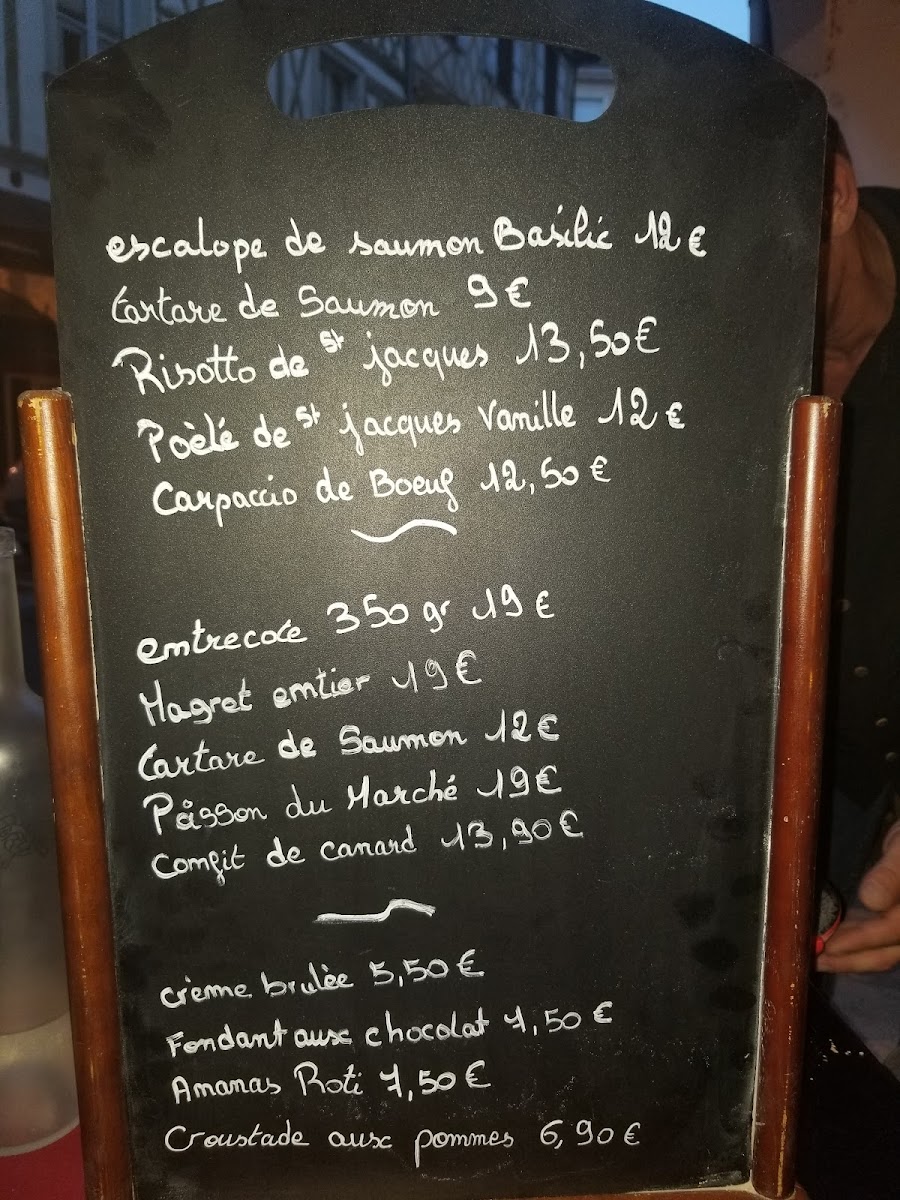 escalope de saumon Basilic 12€
tartare de Saumon 9€
Risotto de St jacques 13,50€
Poèlé de St jacques Vanille 12€
Carpaccio de Boeuf 12,50€
entrecote 350 gr 19€
Magret entier 19€
tartare de Saumon 12€
Poisson du Marché 19€
Confit de canard 13,90€
crème brulée 5,50€
Fondant aux chocolat 7,50€
Ananas Roti 7,50€
Croustade aux pommes 6,90€